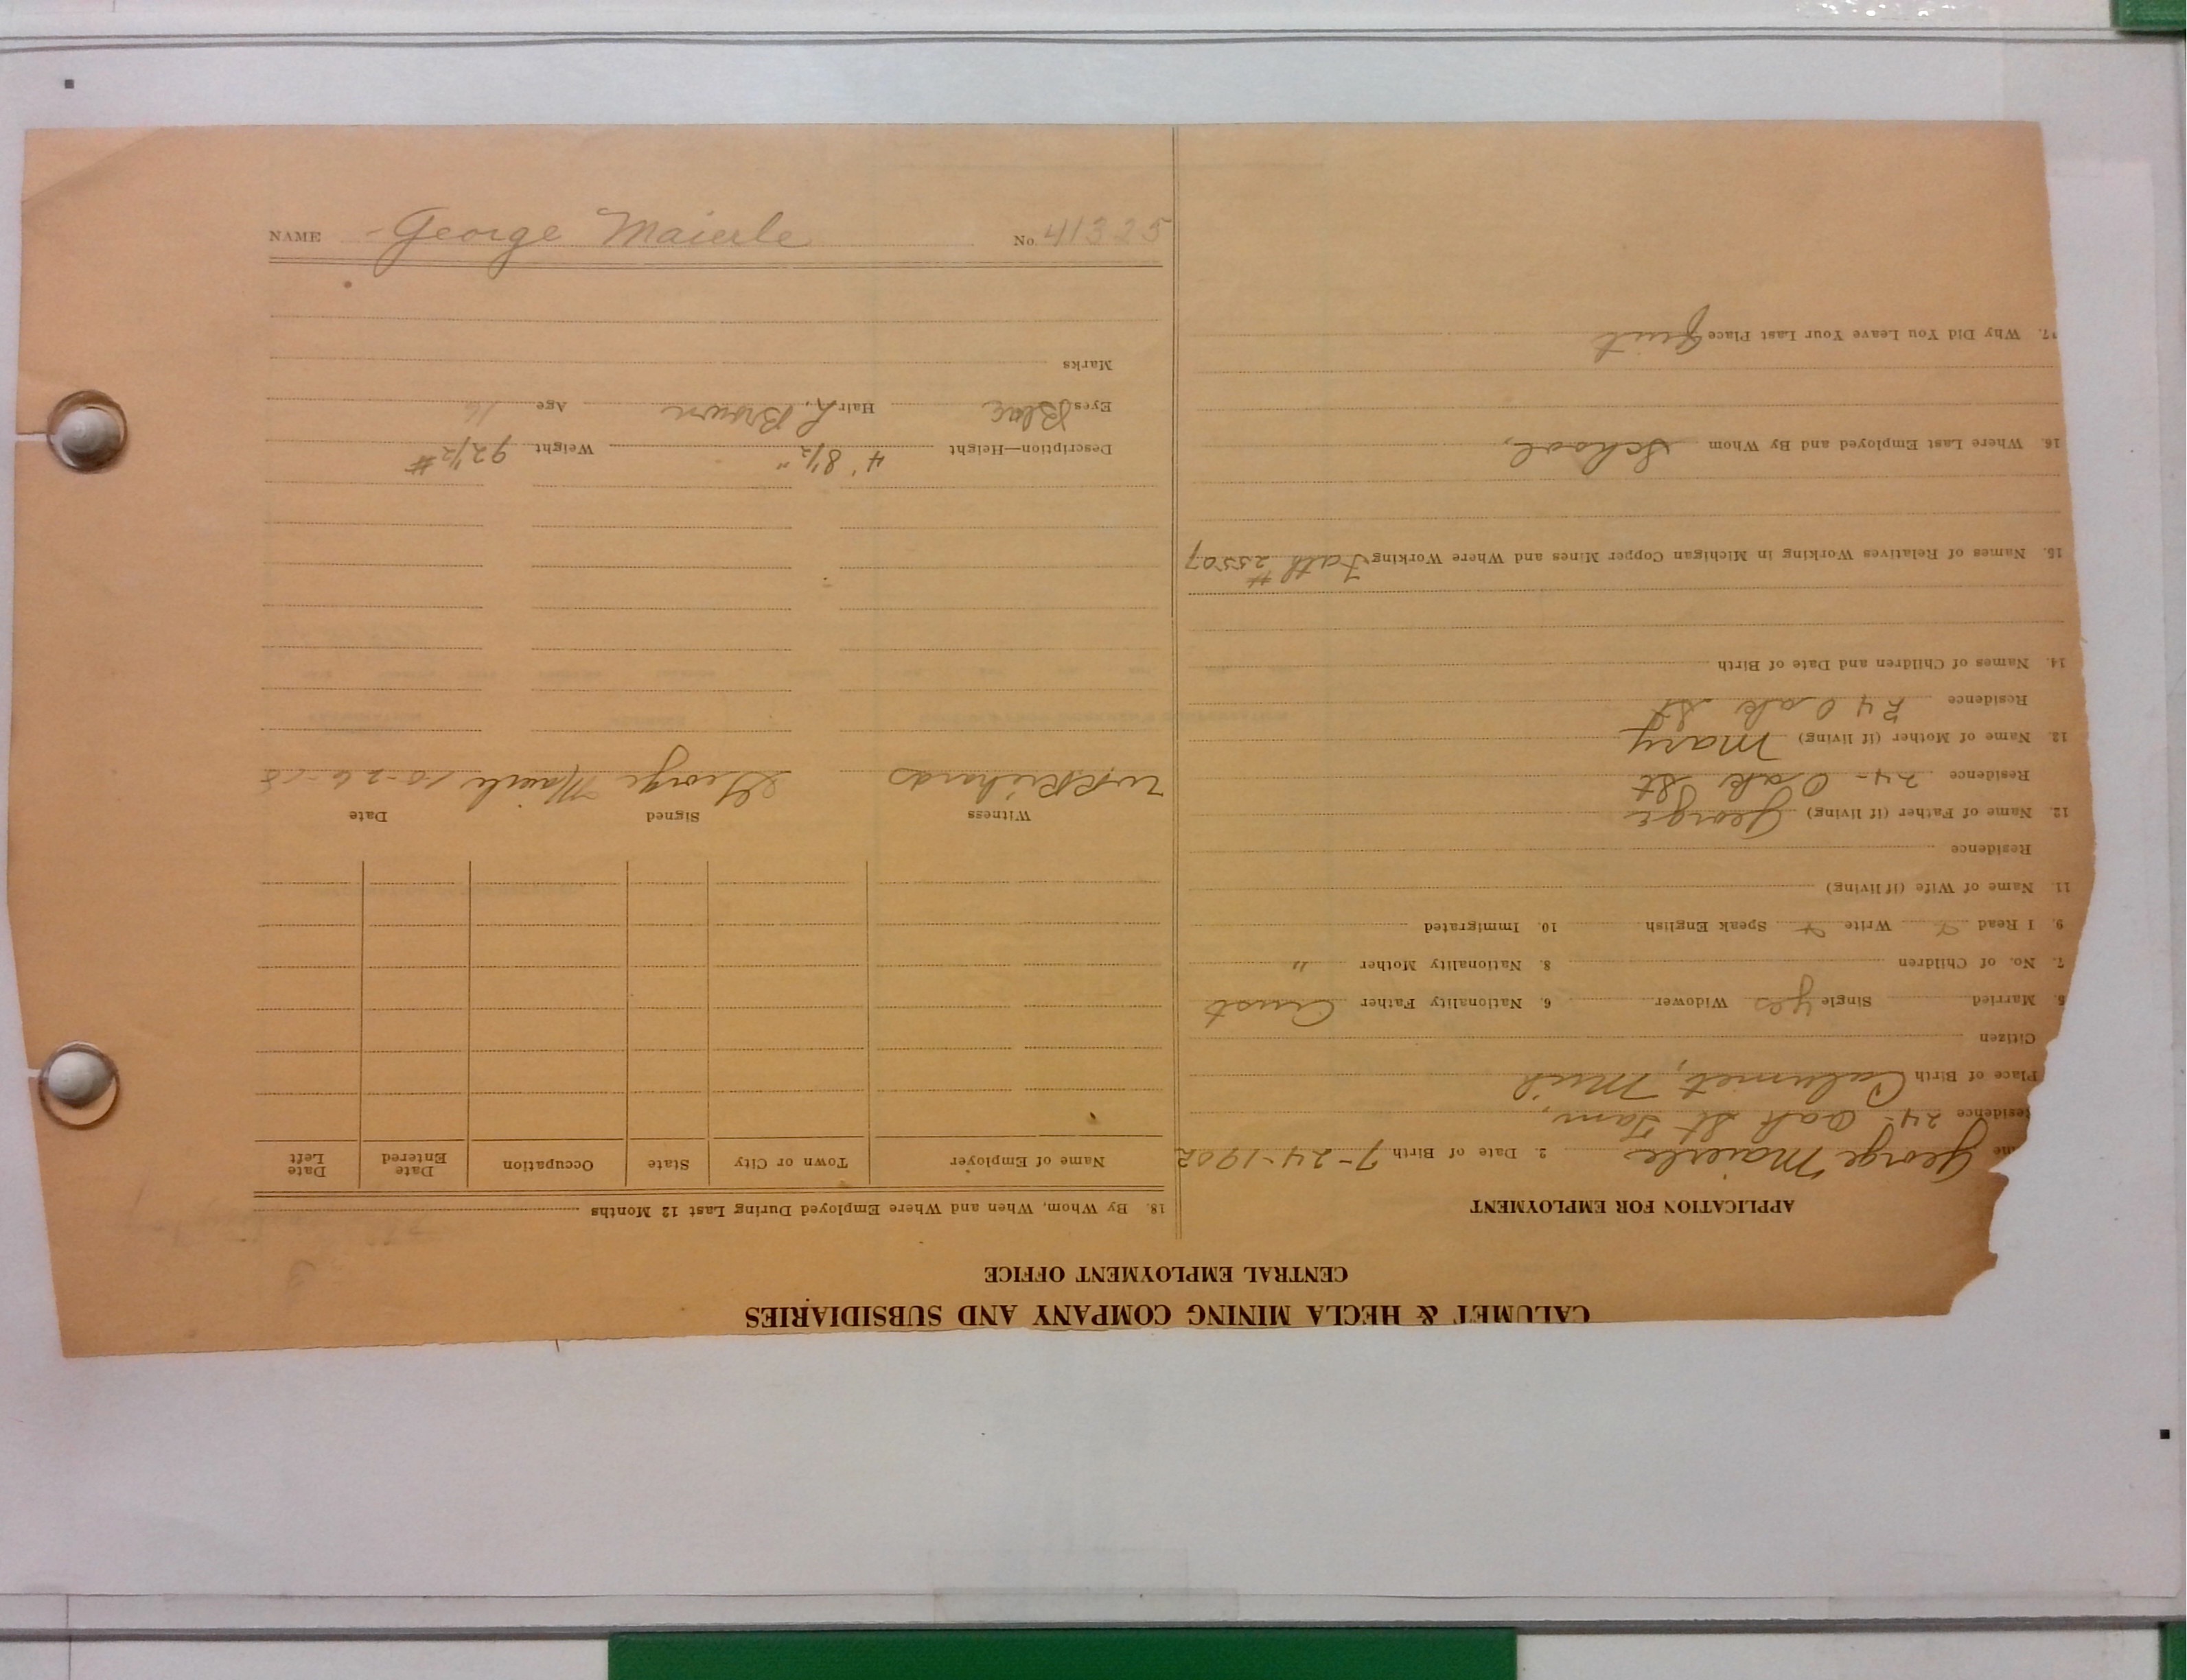 CALUMET & HECLA MINING COMPANY AND SUBSIDIARIES
CENTRAL EMPLOYMENT OFFICE
APPLICATION FOR EMPLOYMENT
me George Maierle 2. Date of Birth 7-24-1902
Residence 24- Oak St Tam,
Place of Birth Calumet, Mich
Citizen
5. Married Single yes Widower 6. Nationality Father Aust
7. No. of Children 8. Nationality Mother "
9. I Read Write Speak English 10. Immigrated
11. Name of Wife (if living)
Residence
12. Name of Father (if living) George
Residence 24- Oak St
13. Name of Mother (if living) Mary
Residence 24 Oak St
14. Names of Children and Date of Birth
15. Names of Relatives Working in Michigan Copper Mines and Where Working Fath #25507
16. Where Last Employed and By Whom School,
17. Why Did You Leave Your Last Place Quit
18. By Whom, When and Where Employed During Last 12 Months
Name of Employer Town or City State Occupation Date Entered Date Left
Witness Signed Date
Richards George Maierle 10-26-18
Description—Height 4' 8 1/2" Weight 92 1/2 #
Eyes Blue Hair L. Brown Age 16
Marks
NAME George Maierle No. 41325